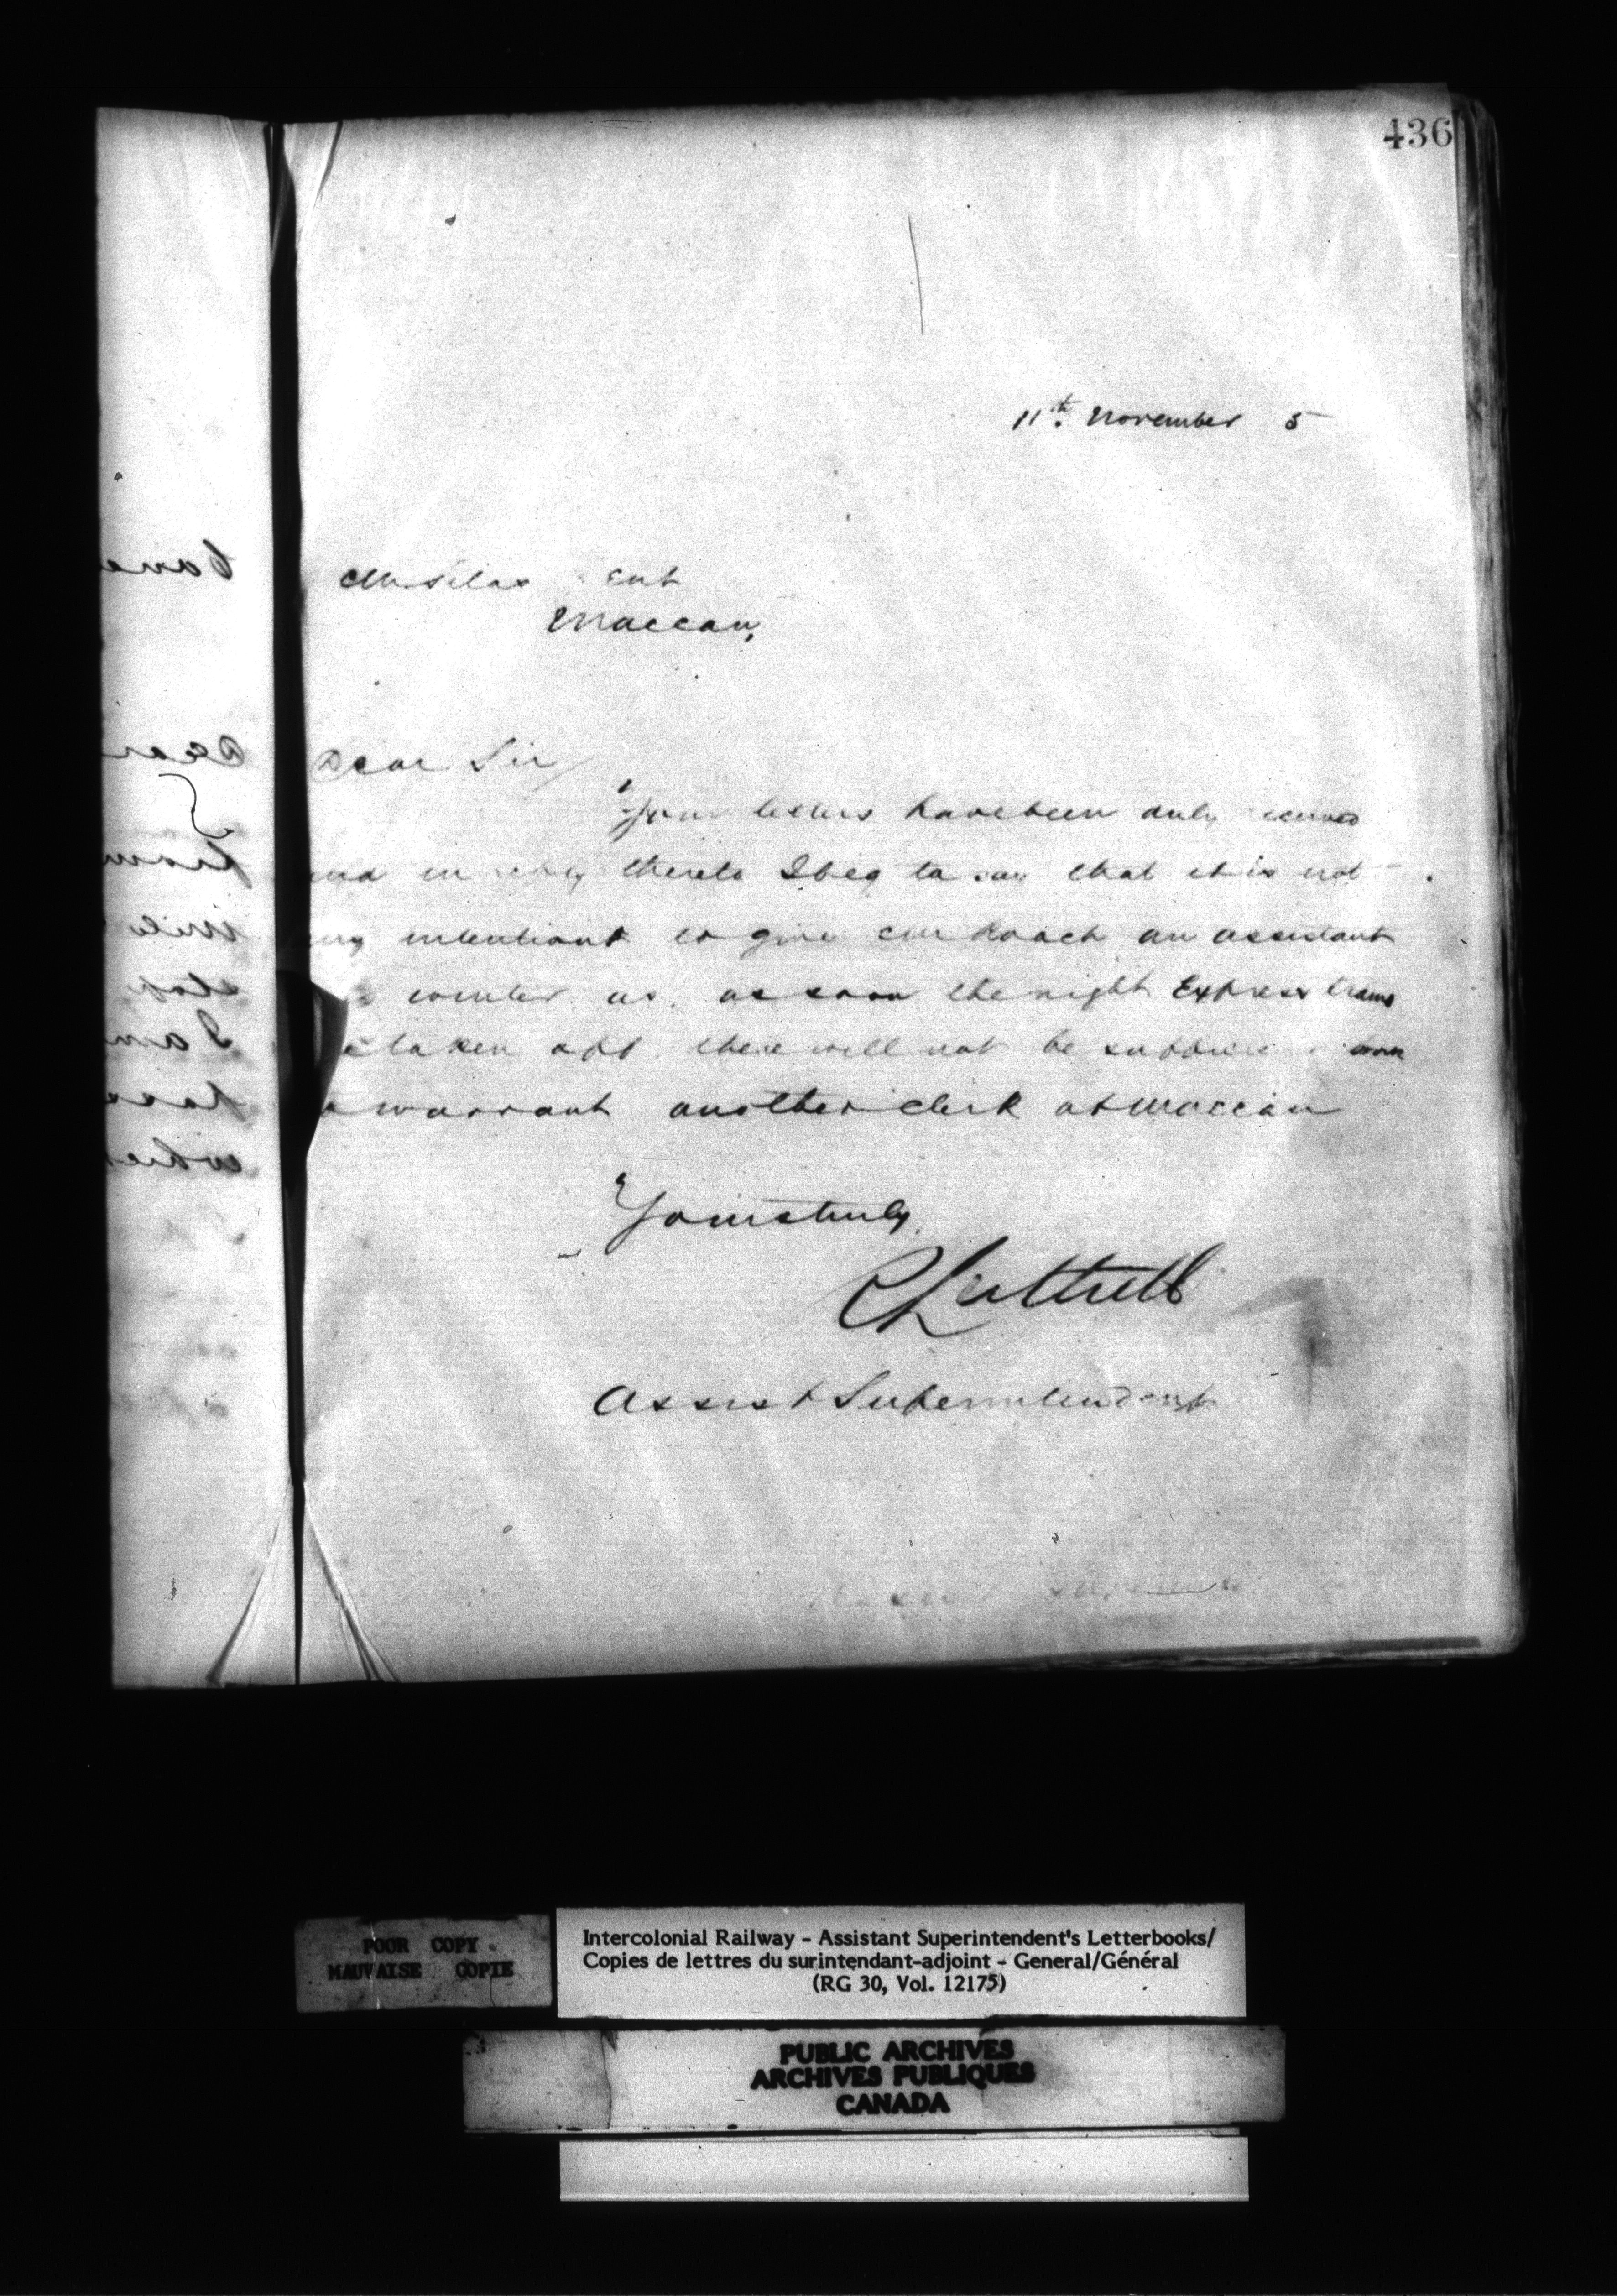 436
11th. November 5
Mr Silas
Maccan,
Dear Sir/
Your letters have been duly received
and in reply thereto I beg to say that it is not
my intention to give Mr Roach an assistant
winter as, as soon the night Express trains
taken off there will not be
warrant another clerk at Maccan
Yours truly
C Luttrell
Assist Superintendent
POOR COPY
MAUVAISE COPIE
Intercolonial Railway - Assistant Superintendent's Letterbooks/
Copies de lettres du surintendant-adjoint - General/Général
(RG 30, Vol. 12175)
PUBLIC ARCHIVES
ARCHIVES PUBLIQUES
CANADA